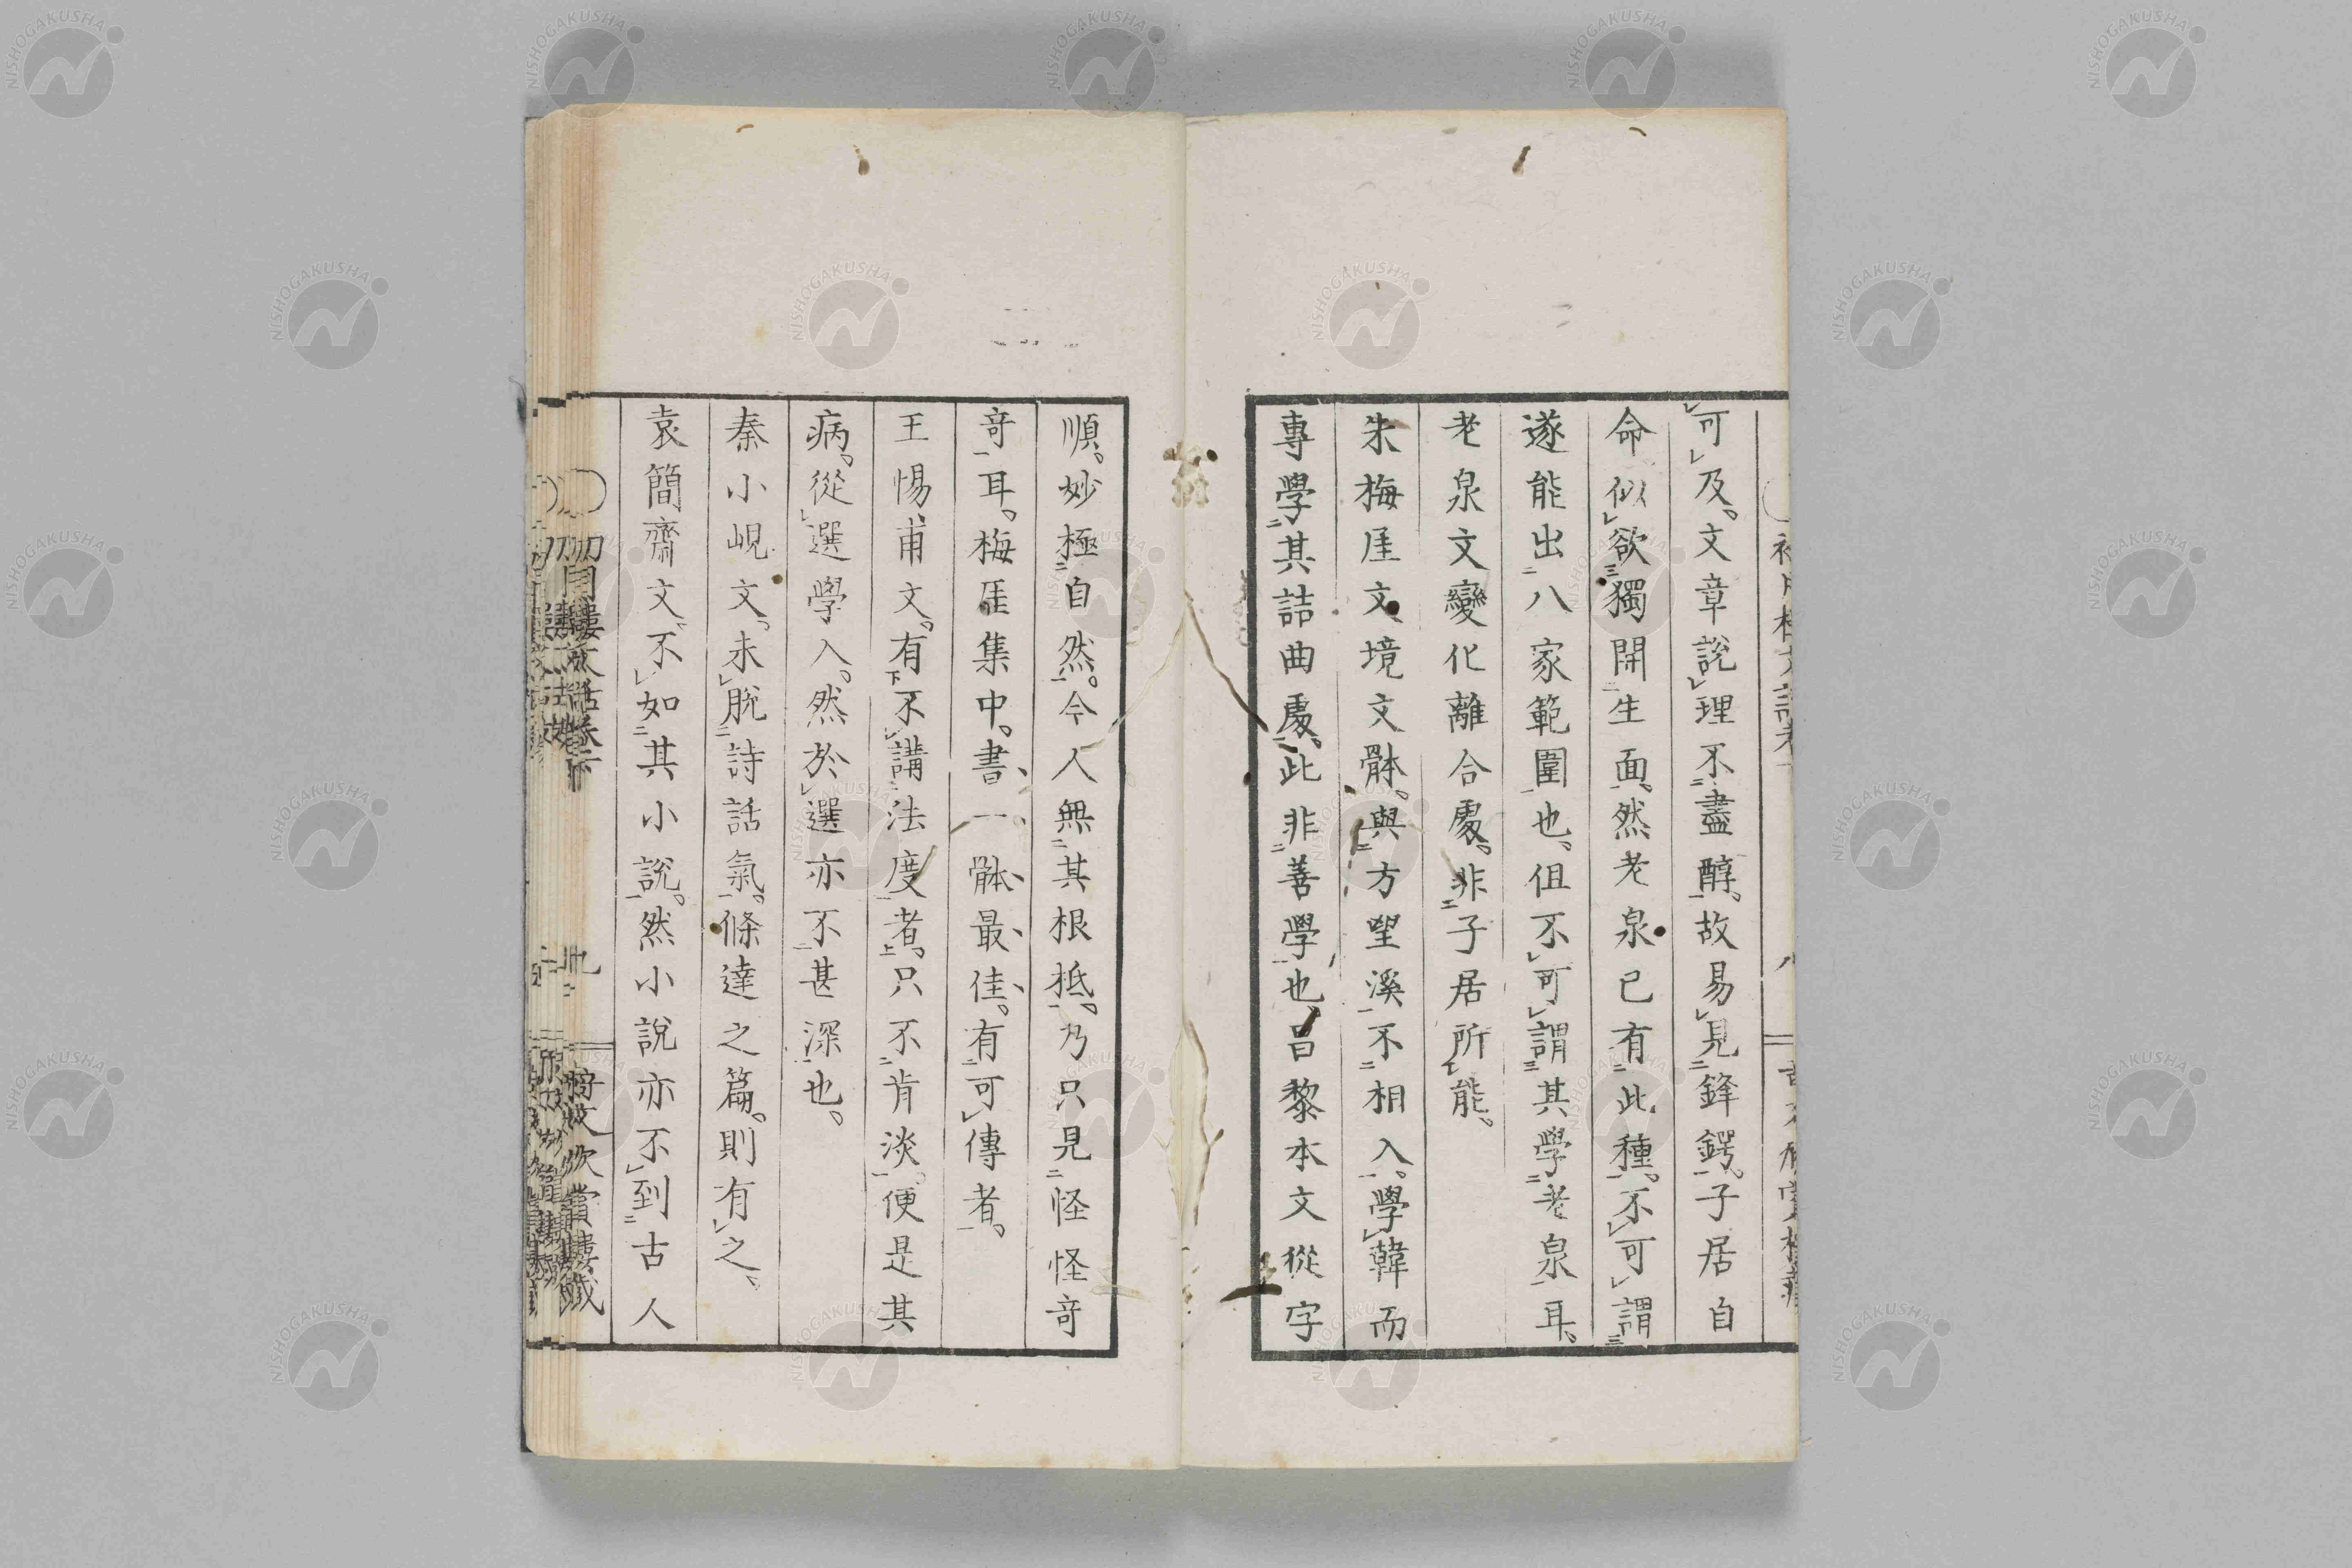 可及。文章說理不盡醇。故易見鋒鍔。子居自
命似欲獨開生面。然老泉已有此種。不可謂
遂能出八家範圍也。但不可謂其學老泉耳。
老泉文變化離合處。非子居所能。
朱梅厓文境文骵。與方望溪不相入。學韓而
專學其詰曲處。此非善學也。昌黎本文從字
順。妙極自然。今人無其根柢。乃只見怪怪奇
奇耳。梅厓集中。書一骵最佳。有可傳者。
王惕甫文。有不講法度者。只不肯淡。便是其
病。從選學入。然於選亦不甚深也。
秦小峴文。未脫詩話氣。條達之篇。則有之。
袁簡齋文。不如其小說。然小說亦不到古人